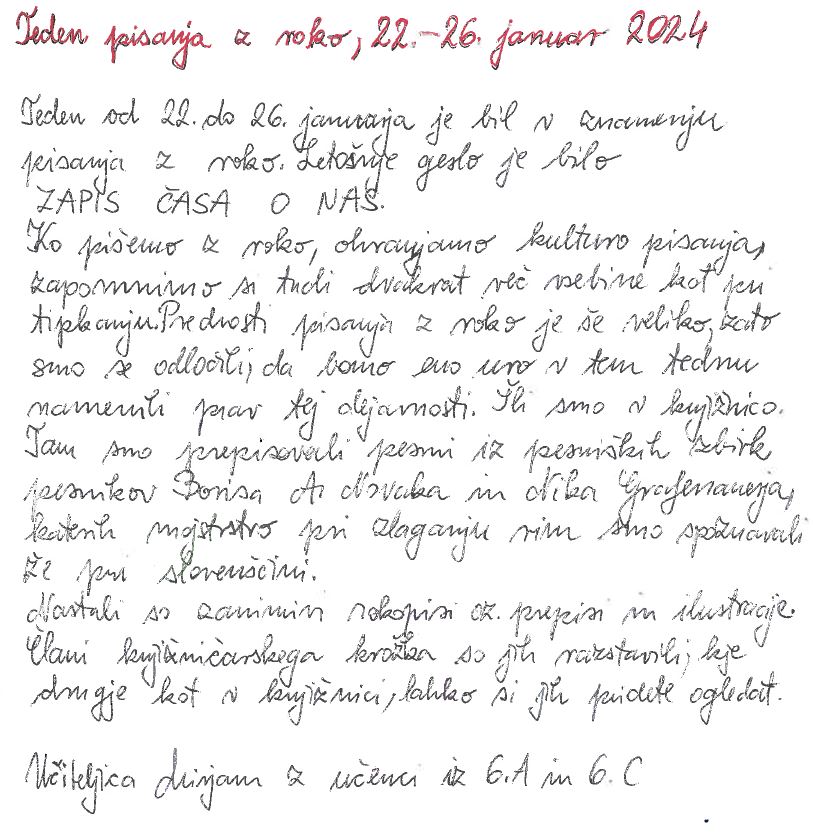 Teden pisanja z roko, 22.-26. januar 2024
Teden od 22. do 26. januarja je bil v znamenju
pisanja z roko. Letošnje geslo je bilo
ZAPIS ČASA O NAS.
Ko pišemo z roko, ohranjamo kulturo pisanja,
zapomnimo si tudi dvakrat več vsebine kot pri
tipkanju. Prednosti pisanja z roko je še veliko, zato
smo se odločili, da bomo eno uro v tem tednu
namenili prav tej dejavnosti. Šli smo v knjižnico.
Tam smo prepisovali pesmi iz pesniških zbirk
pesnikov Borisa A. Novaka in Nika Grafenauerja,
katerih mojstrstvo pri zlaganju rim smo spoznavali
že pri slovenščini.
Nastali so zanimivi rokopisi oz. prepisi in ilustracije.
Člani knjižničarskega krožka so jih razstavili, kje
drugje kot v knjižnici, lahko si jih pridete ogledat.
Učiteljica z učenci iz 6. A in 6. C